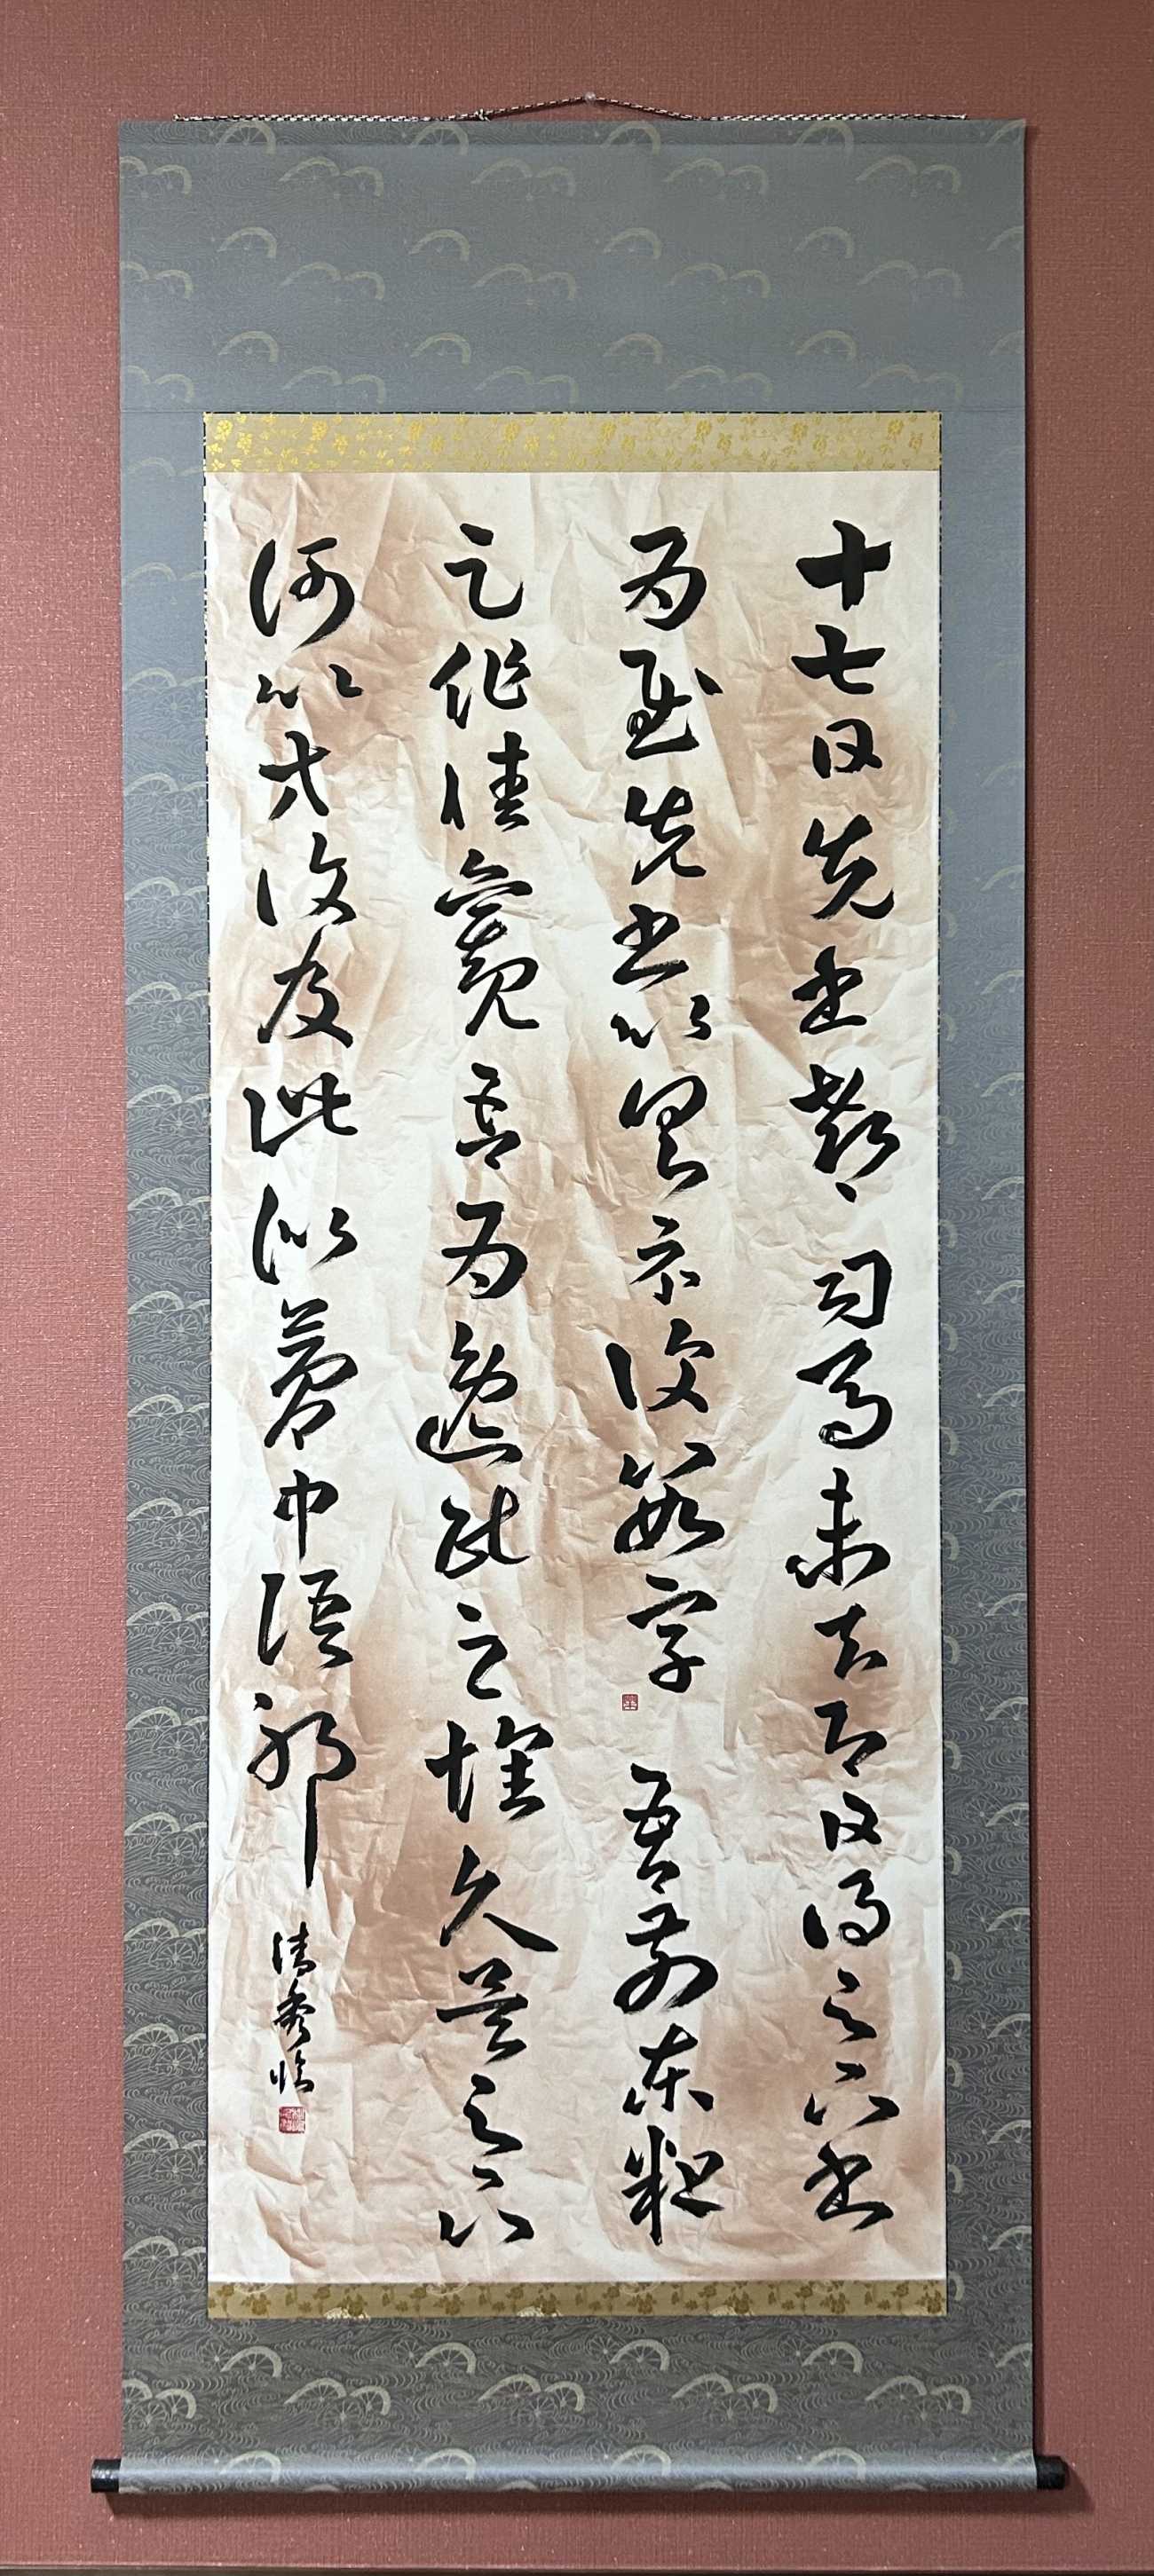 十七日先書郗司馬未去即日得足下書
為慰先書以具示復數字吾前東粗
足作佳觀吾為逸民之懷久矣足下
何以方復及此似夢中語耶
清秀臨